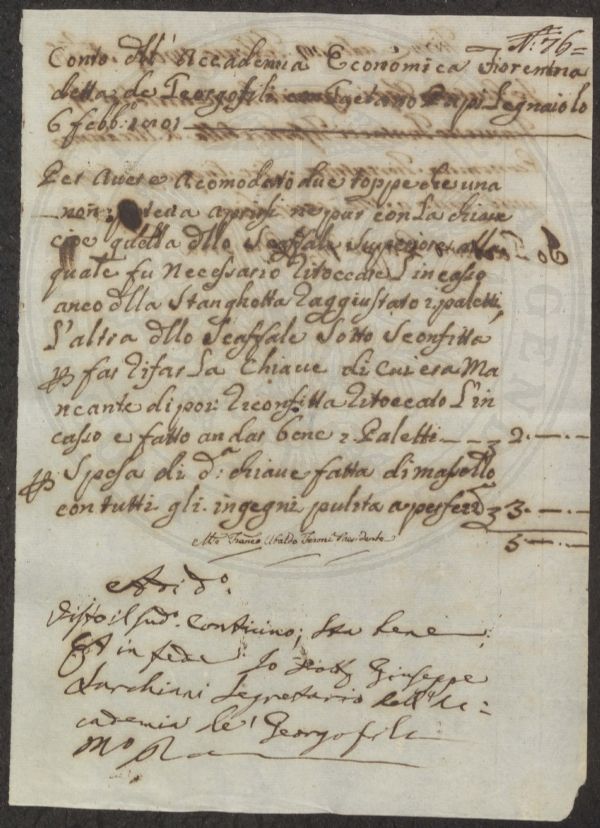 N.° 76=
Conto dll' Accademia Econòmica Fiorentina
detta de Georgofili con Gaetano Papi Legnaiolo
6 febb:°
Per avere acomodato due toppe che una
non poteva aprirsi ne pur con La chiave
cioe quella dllo Scaffale Superiore alla
quale fu Necessario Ritoccare L'incasso
anco dlla Stanghetta Raggiustato i paletti
L'altra dllo Scaffale Sotto Sconfitta
far Rifar La Chiave di cui era Ma
ncante di poi Riconfitta Ritoccato L'in
casso e fatto andar bene i Paletti 2.—.—
Spesa di d.ª chiave fatta di masello
con tutti gli ingegni pulita a perfez 3.—.—
5—.—
Franco Ubaldo Feroni Presidente
Adi d.°
Visto il sud.° Conticino; sta bene
Et in fede Io Dott Giuseppe
Sarchiani Segretario dell'Ac=
cademia de' Georgofili
Mo Pa